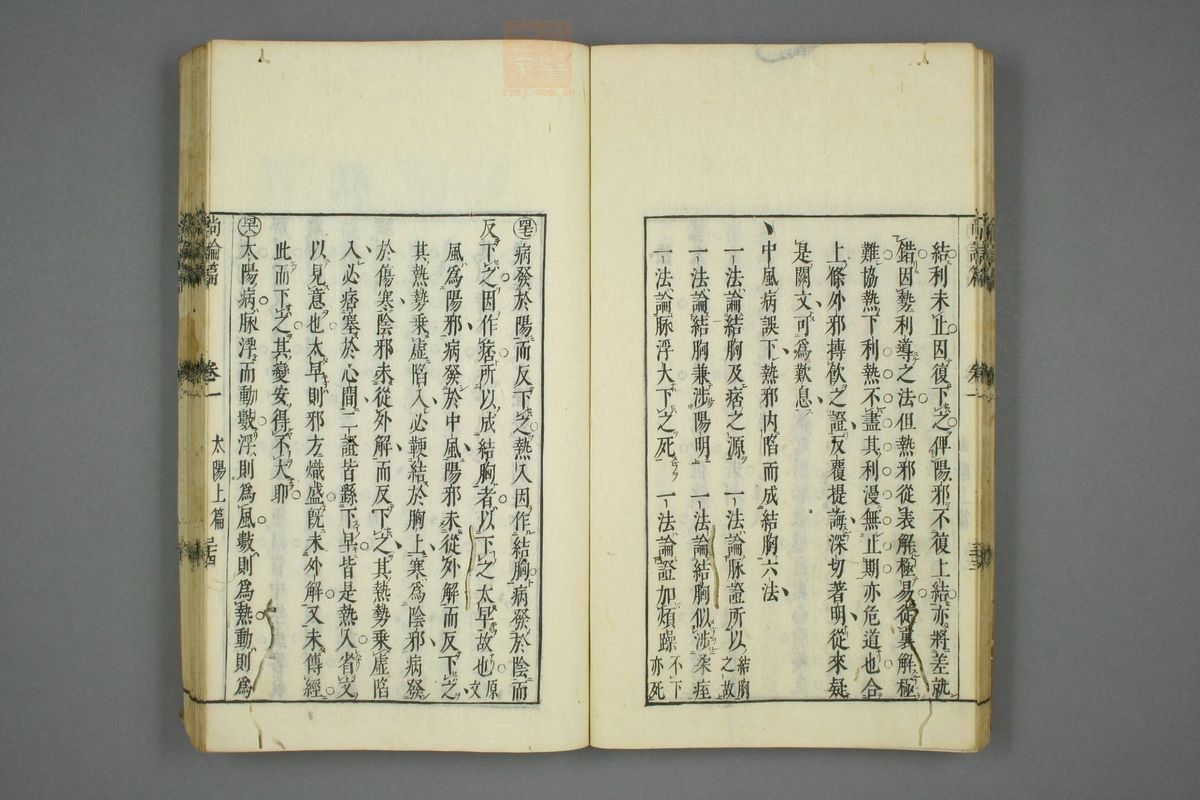 結利未止因復下之俾陽邪不復上結亦將差就
錯因勢利導之法但熱邪從表解極易從裏解極
難協熱下利熱不盡其利漫無止期亦危道也合
上條外邪搏飲之證反覆提誨深切著明從來疑
是闕文可為歎息
中風病誤下熱邪內陷而成結胸六法
一法論結胸及痞之源 一法論脉證所以結胸之故
一法論結胸兼涉陽明 一法論結胸似涉柔痓
一法論脉浮大下之死 一法論證加煩躁不下亦死
病發於陽而反下之熱入因作結胸病發於陰而
反下之因作痞所以成結胸者以下之太早故也原文
風為陽邪病發於中風陽邪未從外解而反下之
其熱勢乘虛陷入必鞕結於胸上寒為陰邪病發
於傷寒陰邪未從外解而反下之其熱勢乘虛陷
入必痞塞於心間二證皆繇下早皆是熱入省文
以見意也太早則邪方熾盛旣未外解又未傳經
此而下之其變安得不大耶
太陽病脉浮而動數浮則為風數則為熱動則為
尚論篇 卷一 太陽上篇 三十四